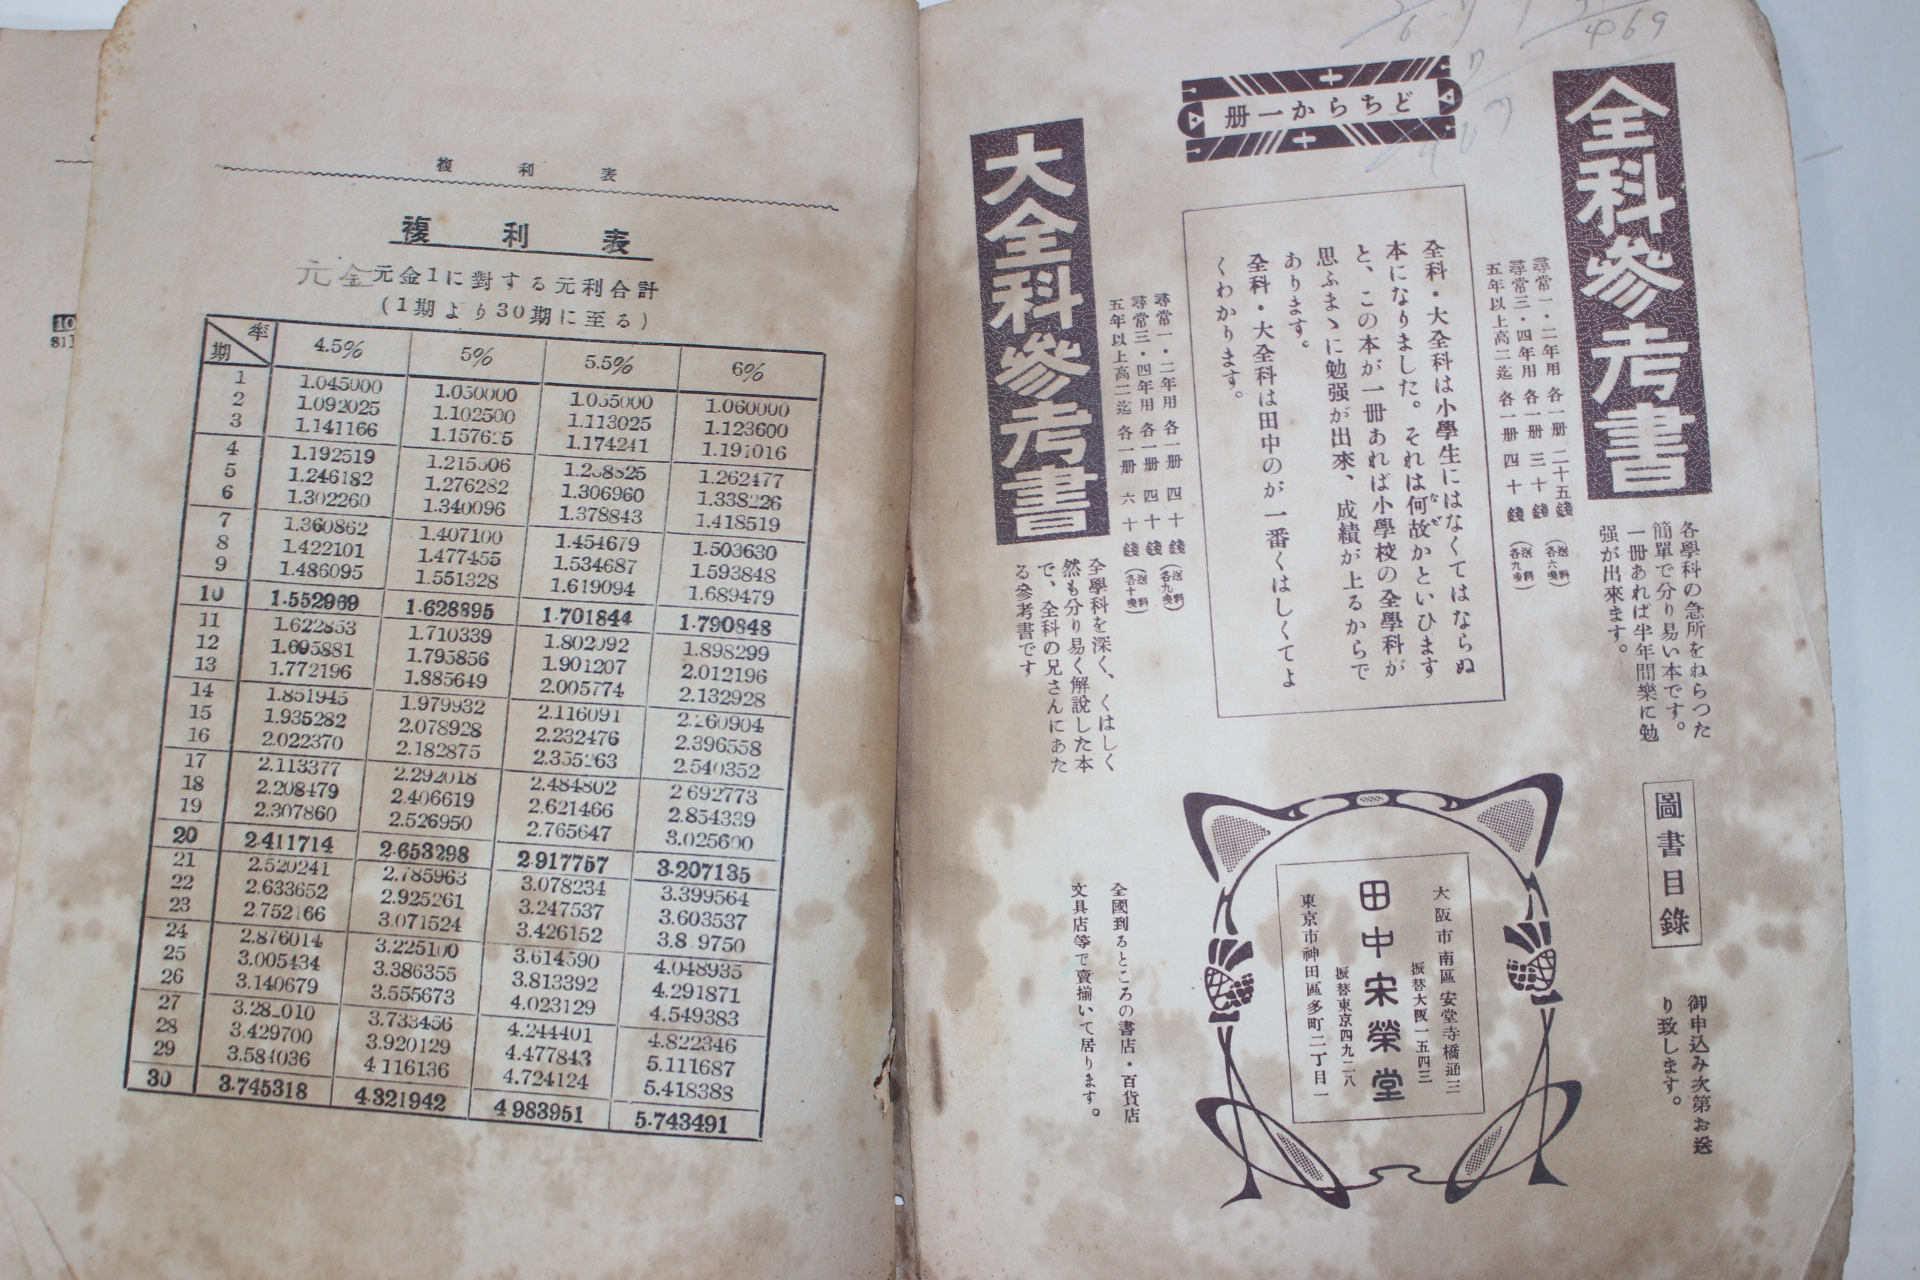 複利表
複利表
元金 元金1に對する元利合計
(1期より30期に至る)
期 率 4.5% 5% 5.5% 6%
1 1.045000 1.050000 1.055000 1.060000
2 1.092025 1.102500 1.113025 1.123600
3 1.141166 1.157625 1.174241 1.191016
4 1.192519 1.215506 1.238825 1.262477
5 1.246182 1.276282 1.306960 1.338226
6 1.302260 1.340096 1.378843 1.418519
7 1.360862 1.407100 1.454679 1.503630
8 1.422101 1.477455 1.534687 1.593848
9 1.486095 1.551328 1.619094 1.689479
10 1.552969 1.628895 1.701844 1.790848
11 1.622853 1.710339 1.802092 1.898299
12 1.695881 1.795856 1.901207 2.012196
13 1.772196 1.885649 2.005774 2.132928
14 1.851945 1.979932 2.116091 2.260904
15 1.935282 2.078928 2.232476 2.396558
16 2.022370 2.182875 2.355263 2.540352
17 2.113377 2.292018 2.484802 2.692773
18 2.208479 2.406619 2.621466 2.854339
19 2.307860 2.526950 2.765647 3.025600
20 2.411714 2.653298 2.917757 3.207135
21 2.520241 2.785963 3.078234 3.399564
22 2.633652 2.925261 3.247537 3.603537
23 2.752166 3.071524 3.426152 3.8 9750
24 2.876014 3.225100 3.614590 4.048935
25 3.005434 3.386355 3.813392 4.291871
26 3.140679 3.555673 4.023129 4.549383
27 3.28 010 3.733456 4.244401 4.822346
28 3.429700 3.920129 4.477843 5.111687
29 3.584036 4.116136 4.724124 5.418388
30 3.745318 4.321942 4.983951 5.743491
469
全科參考書
尋常一・二年用 各一册 二十五錢 (送料各六錢)
尋常三・四年用 各一册 三十錢
五年以上高二迄 各一册 四十錢 (送料各九錢)
各學科の急所をねらつた
簡單で分り易い本です。
一冊あれば半年間樂に勉
强が出來ます。
どちらか一册
全科・大全科は小學生にはなくてはならぬ
本になりました。それは何故かといひます
なぜ
と、この本が一冊あれば小學校の全學科が
思ふまゝに勉强が出來、成績が上るからで
あります。
全科・大全科は田中のが一番くはしくてよ
くわかります。
大全科參考書
尋常一・二年用 各一册 四十錢 (送料各九錢)
尋常三・四年用 各一册 四十錢
五年以上高二迄 各一册 六十錢 (送料各十錢)
全學科を深く、くはしく
然も分り易く解說した本
で、全科の兄さんにあた
る參考書です
圖書目錄
御申込み次第お送
り致します。
大阪市南區安堂寺橋通三
振替大阪一五四三
田中宋榮堂
振替東京四九二八
東京市神田區多町二丁目一
全國到るところの書店・百貨店
文具店等で賣揃いて居ります。